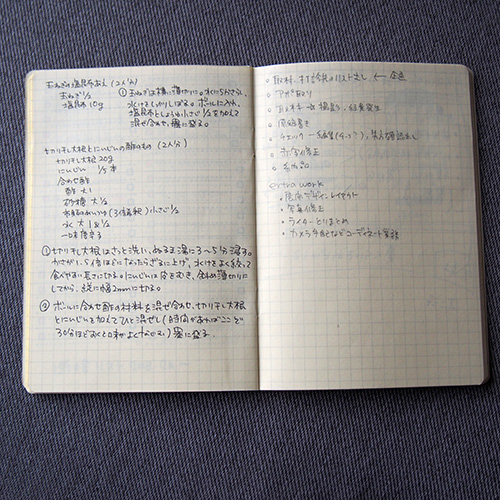 玉ねぎの塩昆布あえ (2人分)
玉ねぎ 1/2
塩昆布 10g
① 玉ねぎは横に薄切りに。水に5分さらし、
水けをしっかりしぼる。ボールに入れ、
塩昆布としょうゆ小さじ 1/2を加えて
混ぜ合わせ、器に盛る。
切り干し大根とにんじんの酢のもの (2人分)
切り干し大根 20g
にんじん 1/5本
合わせ酢
酢 大1
砂糖 大1/2
(3倍希釈) 小さじ1/2
水 大1と1/2
一味唐辛子
① 切り干し大根はさっと洗い、ぬるま湯に3〜5分浸す。
かさが1.5倍ほどになったらざるに上げ、水けをよく絞って
食べやすい長さに切る。にんじんは皮をむき、斜め薄切りに
してから、幅2mmに切る。
② ボールに合わせ酢の材料を混ぜ合わせ、切り干し大根
とにんじんを加えてひと混ぜし(時間があればここで
30分ほどおくと味がよくなじむ) 器に盛る。
取材、打合せのリスト出し ←
アポ取り
原稿書き
チェック
赤字修正
extra work
デザイン レイアウト
写真修正
ライターとりまとめ
カメラ手配などコーディネート業務